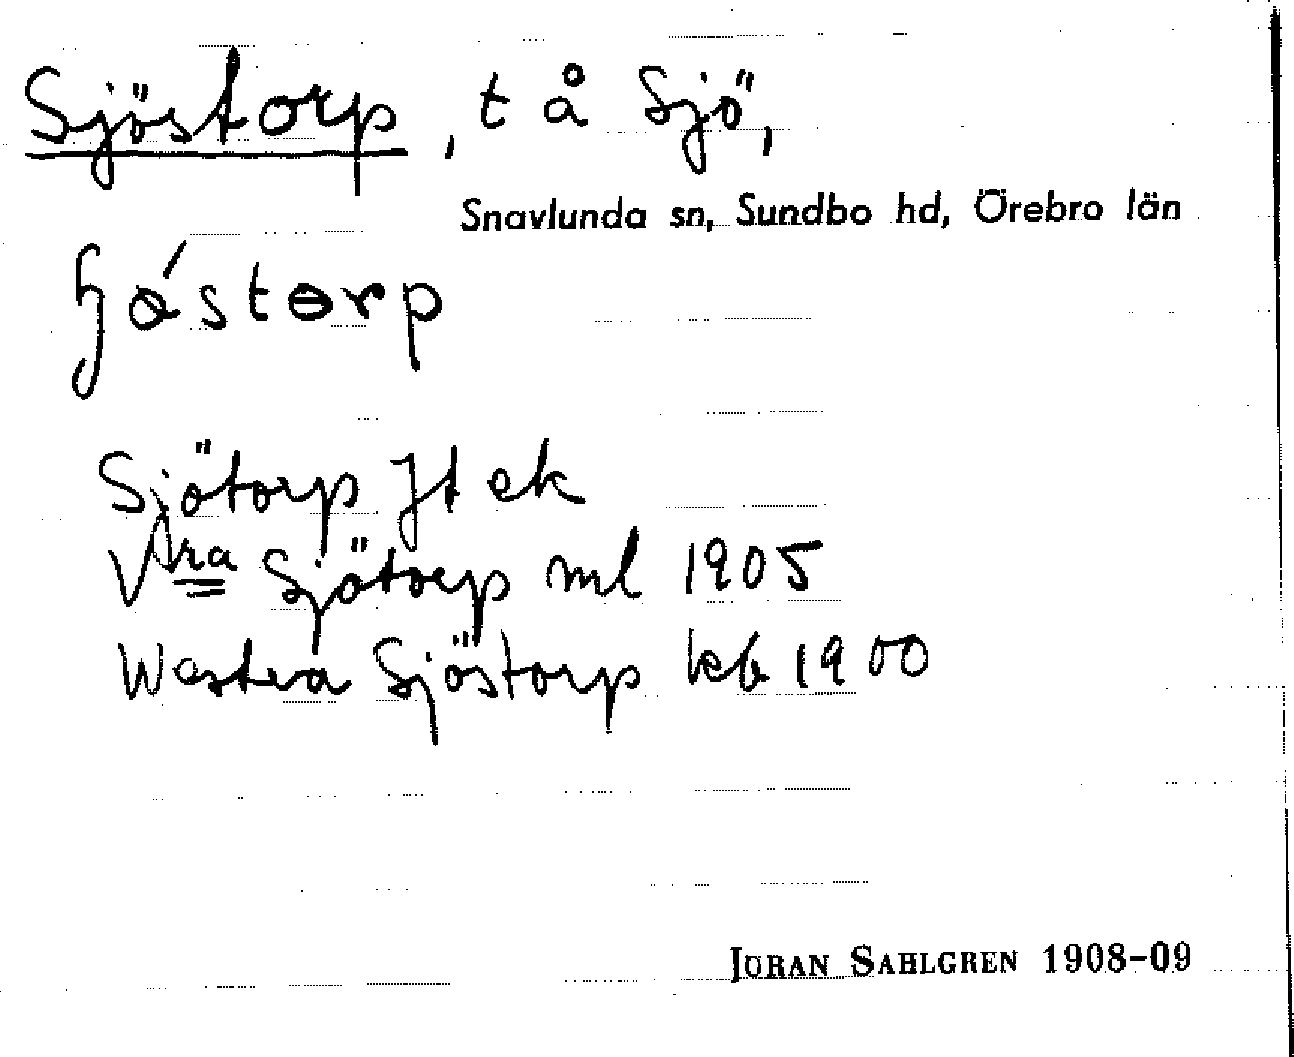 Sjöstorp, t å Sjö,
Snavlunda sn, Sundbo hd, Örebro län
Sjötorp Jt ek
Vra Sjötorp ml 1905
Westra Sjöstorp kb 1900
JÖRAN SAHLGREN 1908-09